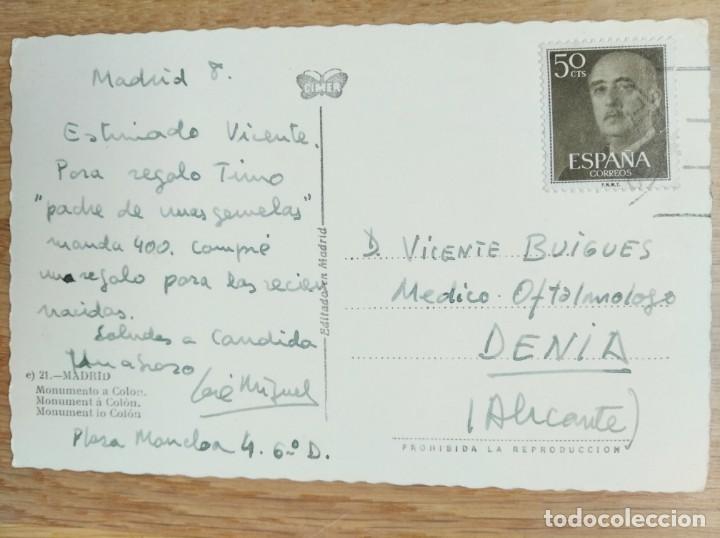 Madrid 8.
Estimado Vicente.
Para regalo Timo
"padre de unas gemelas"
manda 400. Compré
un regalo para las recien
nacidas.
Saludos a Candida
Un abrazo
José Miguel
Plaza Moncloa 4. 6º D.
e) 21.—MADRID
Monumento a Colon.
Monument à Colón.
Monument to Colón
CIMER
Editado en Madrid
50
CTS
ESPAÑA
CORREOS
F.N.M.T.
D. VICENTE BUIGUES
Medico-Oftalmologo
DENIA
(Alicante)
PROHIBIDA LA REPRODUCCION
todocoleccion